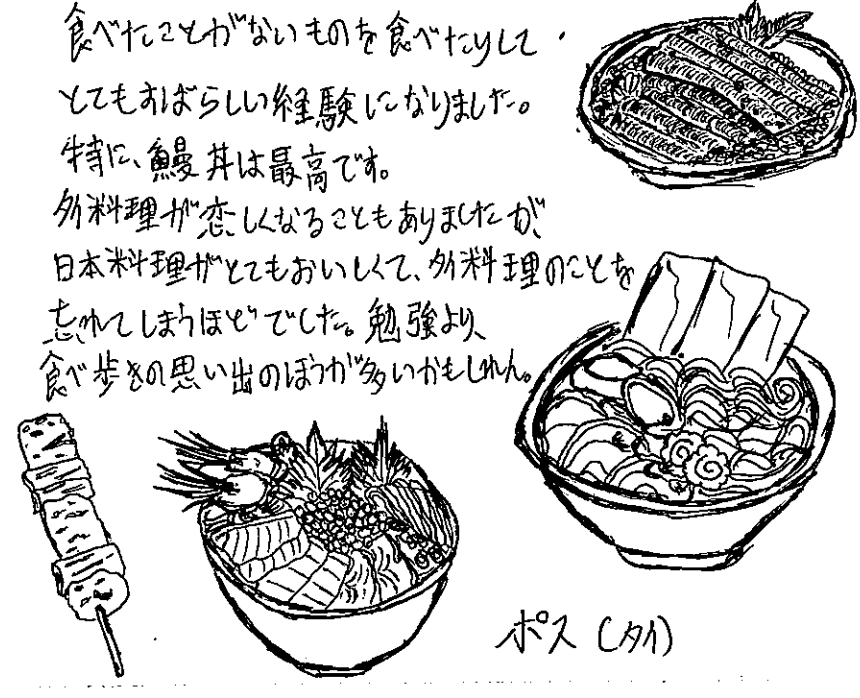 食べたことがないものを食べたりして
とてもすばらしい経験になりました。
特に、鰻丼は最高です。
タイ料理が恋しくなることもありましたが、
日本料理がとてもおいしくて、タイ料理のことを
忘れてしまうほどでした。勉強より、
食べ歩きの思い出のほうが多いかもしれん。
ポス (タイ)